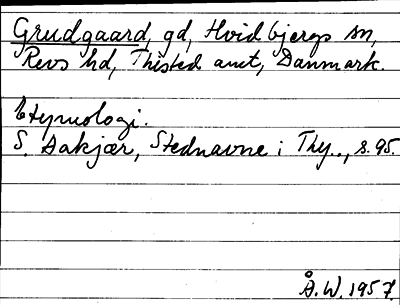 Grudgaard, gd, Hvidbjergs sn,
Revs hd, Thisted amt, Danmark.
Etymologi.
S. Aakjær, Stednavne i Thy.., s. 95.
Å.W. 1957.